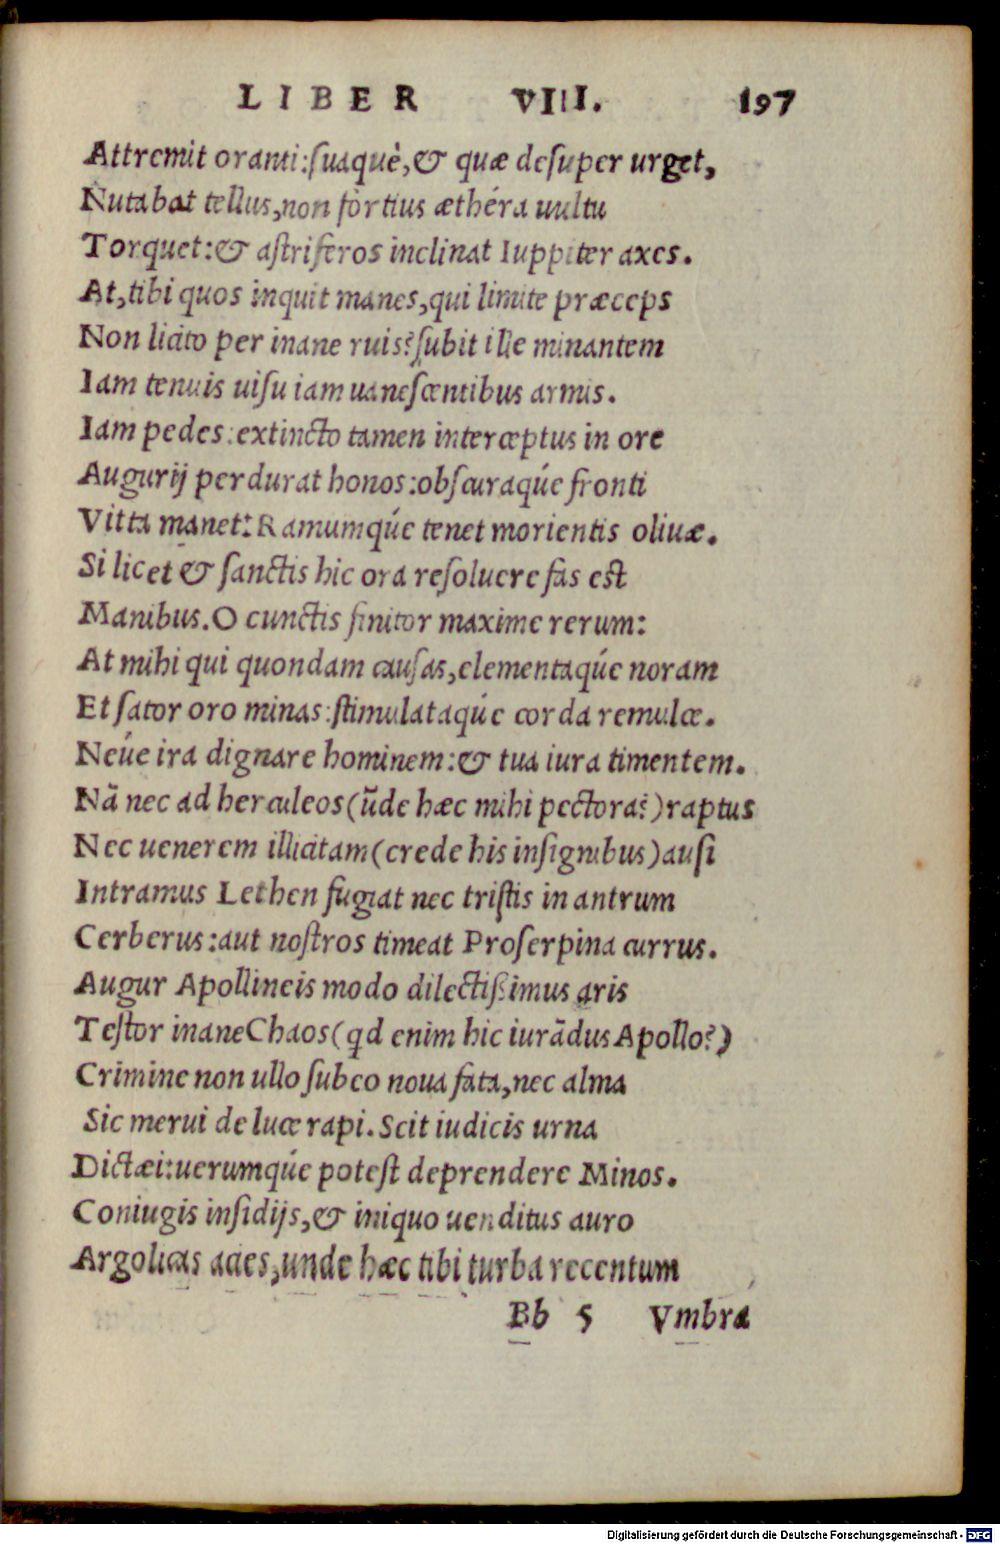 LIBER VIII. 197
Attremit oranti:suaquè,& quæ desuper urget,
Nutabat tellus,non fortius æthéra uultu
Torquet:& astriferos inclinat Iuppiter axes.
At,tibi quos inquit manes,qui limite præceps
Non licito per inane ruis?subit ille minantem
Iam tenuis uisu iam uanescentibus armis.
Iam pedes:extincto tamen interceptus in ore
Augurij perdurat honos:obscuraqúe fronti
Vitta manet:Ramumqúe tenet morientis oliuæ.
Si licet & sanctis hic ora resoluere fas est
Manibus.O cunctis finitor maxime rerum:
At mihi qui quondam causas,elementaqúe noram
Et sator oro minas:stimulataqúe corda remulce.
Neúe ira dignare hominem:& tua iura timentem.
Nã nec ad herculeos(ũde hæc mihi pectora?)raptus
Nec uenerem illicitam(crede his insignibus)ausi
Intramus Lethen fugiat nec tristis in antrum
Cerberus:aut nostros timeat Proserpina currus.
Augur Apollineis modo dilectißimus aris
Testor inane Chaos(qd enim hic iurãdus Apollo?)
Crimine non ullo subeo noua fata,nec alma
Sic merui de luce rapi.Scit iudicis urna
Dictæi:uerumqúe potest deprendere Minos.
Coniugis insidijs,& iniquo uenditus auro
Argolicas acies,unde hæc tibi turba recentum
Bb 5 Vmbra
Digitalisierung gefördert durch die Deutsche Forschungsgemeinschaft - DFG